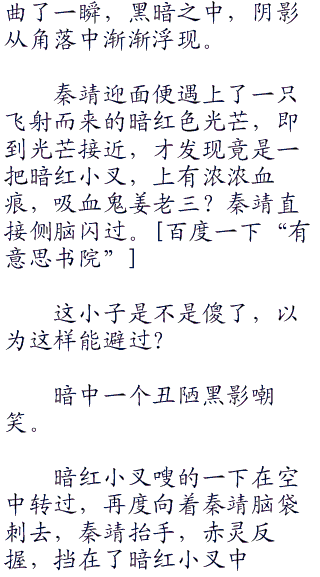 曲了一瞬，黑暗之中，阴影
从角落中渐渐浮现。
秦靖迎面便遇上了一只
飞射而来的暗红色光芒，即
到光芒接近，才发现竟是一
把暗红小叉，上有浓浓血
痕，吸血鬼姜老三？秦靖直
接侧脑闪过。[百度一下“有
意思书院”]
这小子是不是傻了，以
为这样能避过？
暗中一个丑陋黑影嘲
笑。
暗红小叉嗖的一下在空
中转过，再度向着秦靖脑袋
刺去，秦靖抬手，赤灵反
握，挡在了暗红小叉中